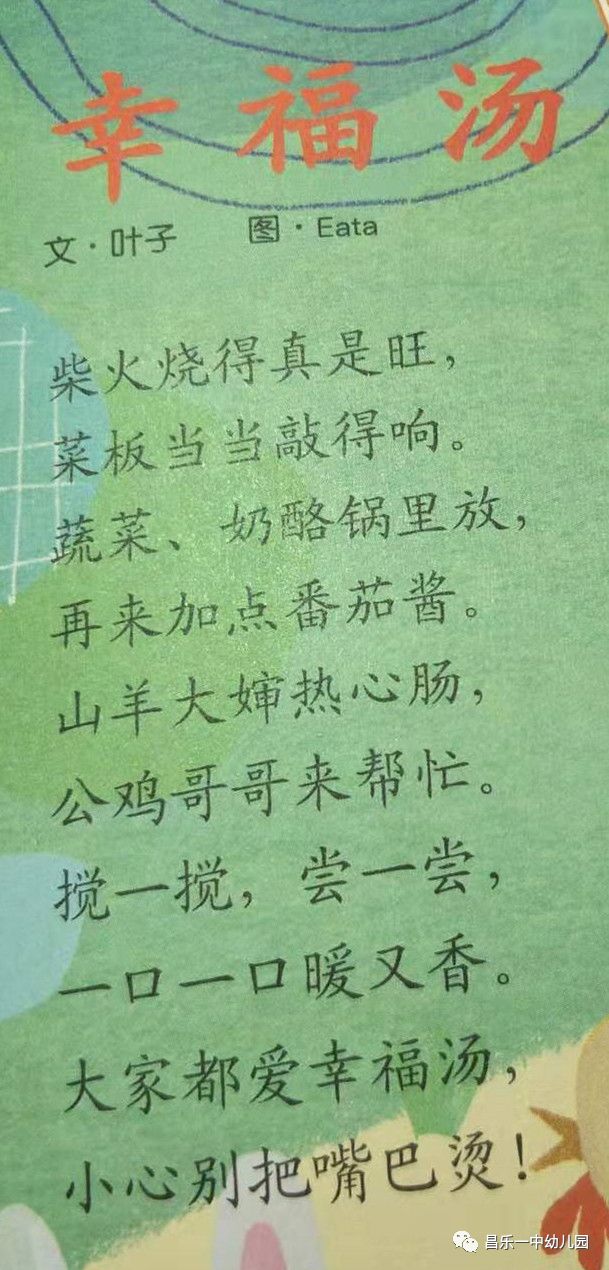 幸福汤
文·叶子 图·Eata
柴火烧得真是旺，
菜板当当敲得响。
蔬菜、奶酪锅里放，
再来加点番茄酱。
山羊大婶热心肠，
公鸡哥哥来帮忙。
搅一搅，尝一尝，
一口一口暖又香。
大家都爱幸福汤，
小心别把嘴巴烫！
昌乐一中幼儿园